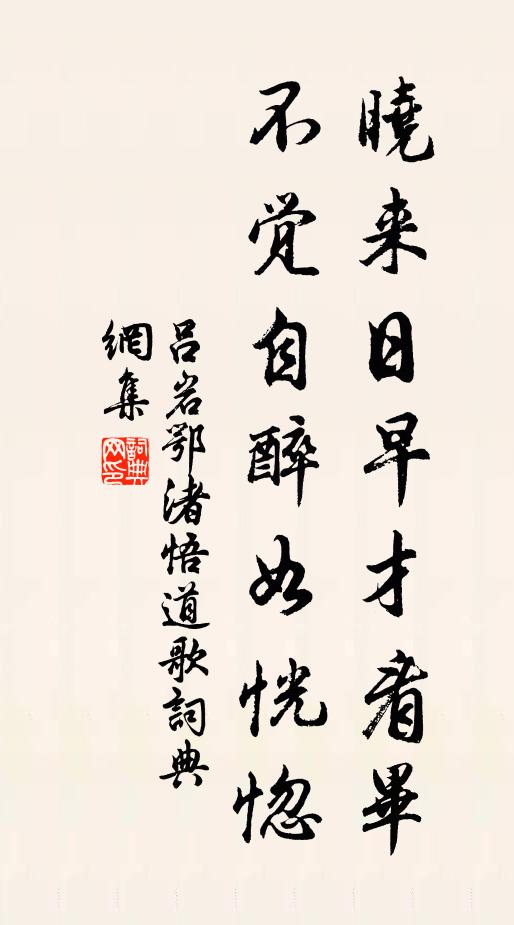 曉来日早才看畢
不覺自醉如恍惚
吕岩鄂渚悟道歌詞典
網集
詞典
网印